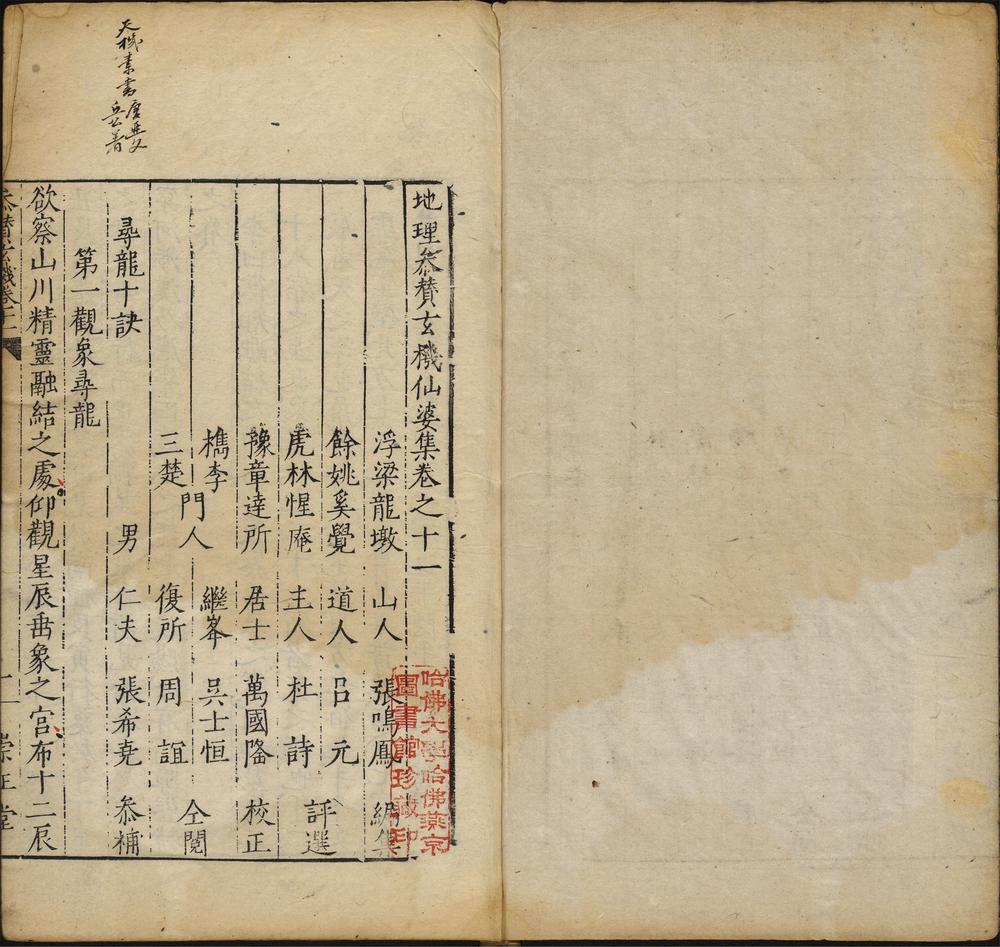 地理叅賛玄機仙婆集卷之十一
浮梁龍墩山人張鳴鳳編集
餘姚奚覺道人呂元
虎林惺庵主人杜詩
評選
豫章達所居士萬國隆校正
檇李繼峯吳士恒
三楚復所周誼
門人
仝閱
男仁夫張希堯叅補
尋龍十訣
第一觀象尋龍
欲察山川精靈融結之處仰觀星辰垂象之宮布十二辰
叅賛玄機卷十一
二
崇正堂
天機素書
著
哈佛大學哈佛燕京
圖書館珍藏印